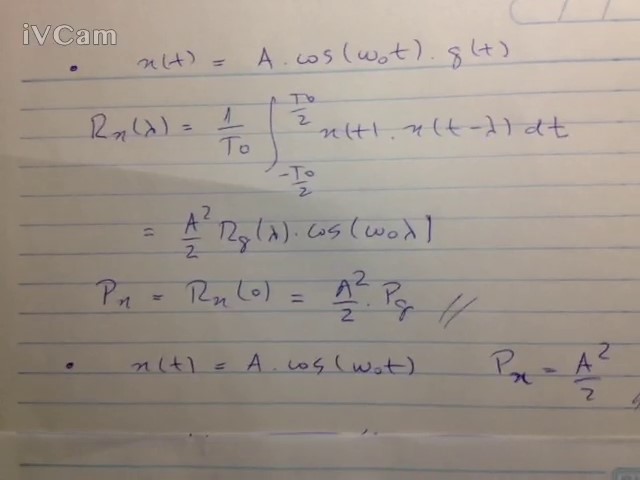 iVCam
• x(t) = A . cos(ω₀t) . g(t)
Rₓ(λ) = 1/T₀ ∫_{-T₀/2}^{T₀/2} x(t) . x(t-λ) dt
= A²/2 R_g(λ) . cos(ω₀λ)
Pₓ = Rₓ(0) = A²/2 . P_g //
• x(t) = A . cos(ω₀t) Pₓ = A²/2